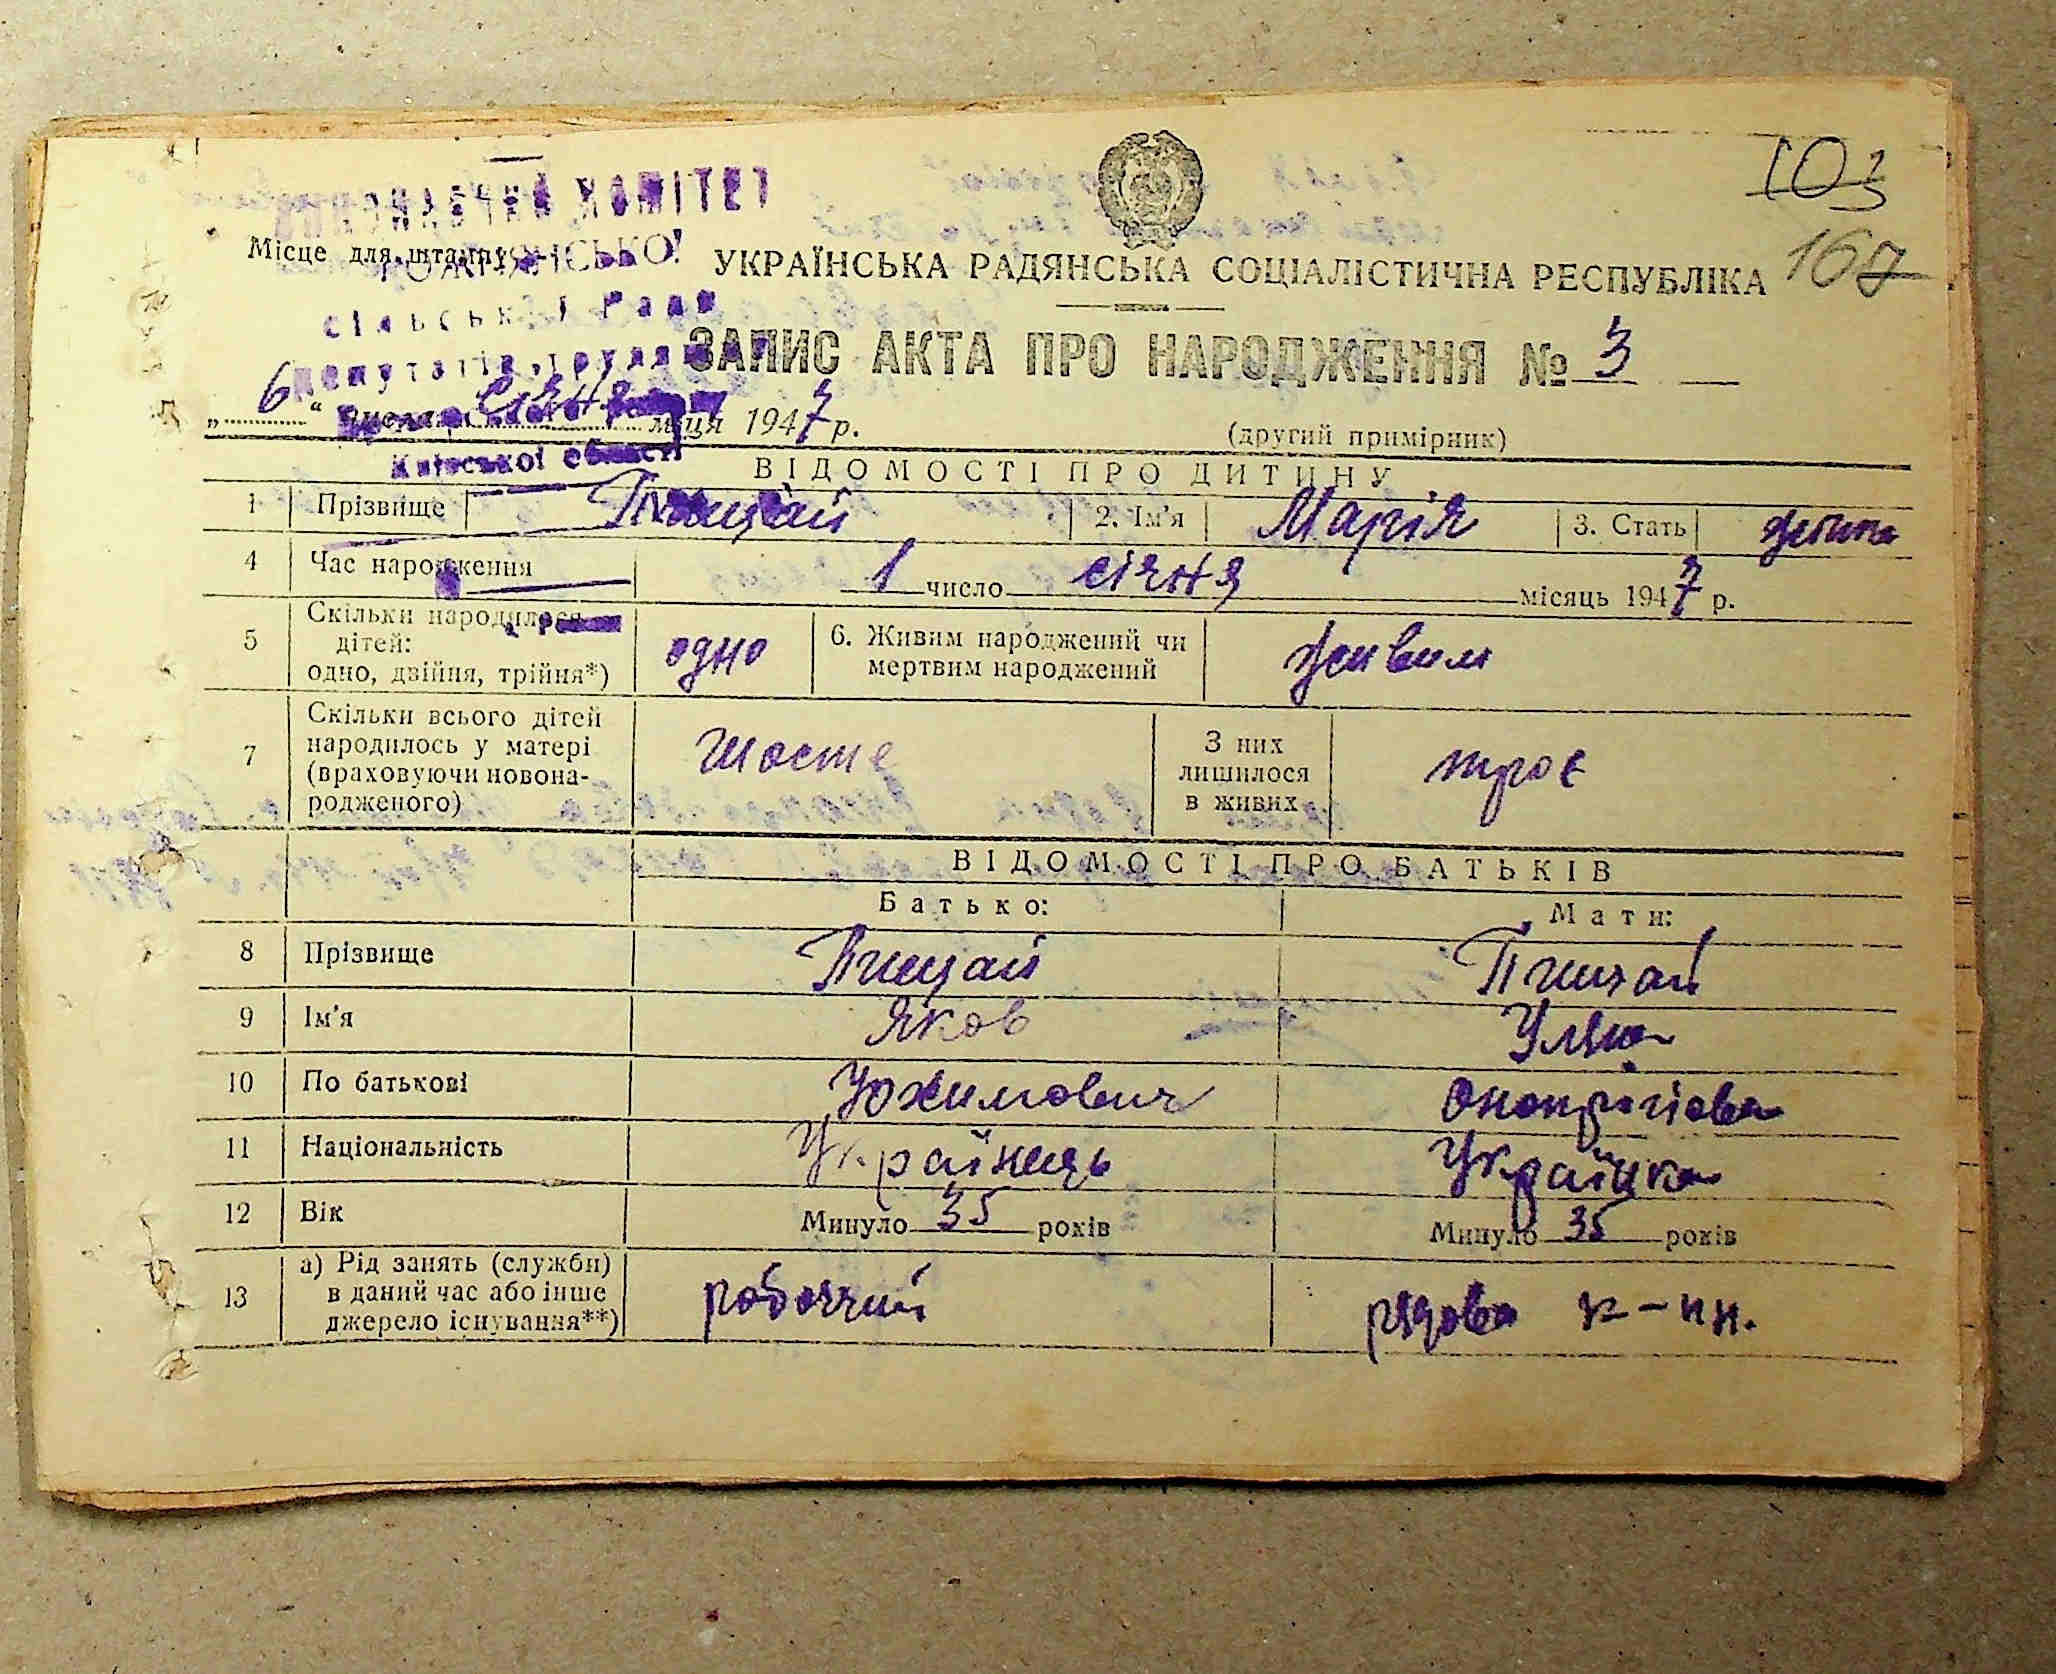 ВИКОНАВЧИЙ КОМІТЕТ
Місце для штампу
сільської Ради
депутатів трудящих
Київської області
103
167
УКРАЇНСЬКА РАДЯНСЬКА СОЦІАЛІСТИЧНА РЕСПУБЛІКА
ЗАПИС АКТА ПРО НАРОДЖЕННЯ № 3
„6“ січня м-ця 1947 р.
(другий примірник)
ВІДОМОСТІ ПРО ДИТИНУ
1 Прізвище Пищай 2. Ім'я Марія 3. Стать жіноча
4 Час народження 1 число січня місяць 1947 р.
5 Скільки народилося
дітей:
одно, двійня, трійня*) одно
6. Живим народжений чи
мертвим народжений живим
7 Скільки всього дітей
народилось у матері
(враховуючи новона-
родженого) шосте
З них
лишилося
в живих троє
ВІДОМОСТІ ПРО БАТЬКІВ
Батько: Мати:
8 Прізвище Пищай Пищай
9 Ім'я Яков Уляна
10 По батькові Юхимович Онопріїова
11 Національність Українець Українка
12 Вік Минуло 35 років Минуло 35 років
13 а) Рід занять (служби)
в даний час або інше
джерело існування**) робочий рядова к-пн.